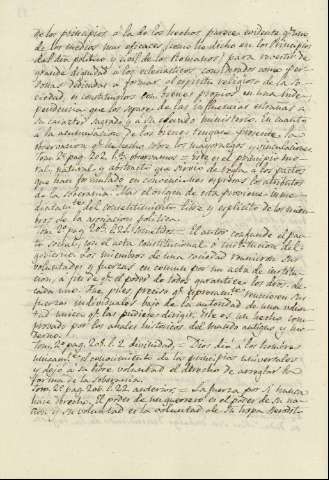 de los principios ó la de los hechos parece evidente q.e uno
de los medios mas eficaces (como he dicho en los Principios
del dro politico y civil de los Romanos) para revestir de
grande dignidad á los eclesiasticos considerados como per-
sonas dedicadas á formar el espiritu religioso de la so-
ciedad, es constituyrlos con bienes propios en una inde-
pendencia que los separe de las influencias estrañas a
su caracter sagrado y á su augusto ministerio. En cuanto
á la acumulacion de los bienes tengase presente la
observacion q.e he hecho sobre los mayorazgos y vinculaciones.
Tom. 2.º pag. 202 l. observamos = Este es el principio mo-
ral, natural y abstracto que sirvió de regla a los pactos
que han formulado en convenciones espresas los atributos
de la soberania. Mas el origen de esta proviene inme-
diatam.te del consentimiento libre y esplicito de los miem-
bros de la asociacion politica.
Tom. 2.º pag. 20 l. 22 = El autor confunde el pac-
to social, con el acta constitucional ó institucion del
gobierno. Los miembros de una sociedad reunieron sus
voluntades y fuerzas en comun por un acta de institu-
cion, á fin de q.e el poder de todos garantice los dros de
cada uno. Fue pues preciso q.e reunieron sus
fuerzas individuales bajo de la autoridad de una volun-
tad unica q.e las pudiese dirigir. Este es un hecho com-
provado por los anales historicos del mundo antiguo y mo-
derno.
Tom. 2.º pag. 208. l. 2 = Dios dió á los hombres
unicam.te el conocimiento de los principios universales
y dejó a su libre voluntad el derecho de arreglar la
forma de la soberania.
Tom. 2.º pag. 208. l. 22 anterior = La fuerza por si nunca
hace derecho. El poder de un guerrero es el poder de su na-
cion y su voluntad es la voluntad de su tropa